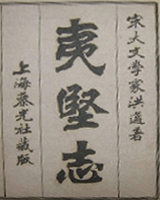 宋大文學家洪邁著
夷堅志
上海泰光社藏版